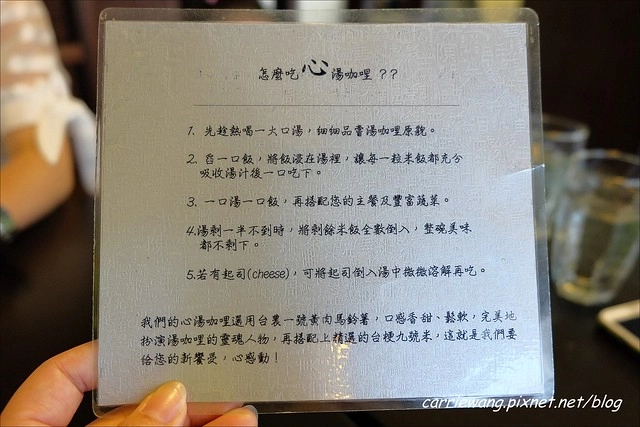 怎麼吃心湯咖哩 ??
1. 先趁熱喝一大口湯，細細品嘗湯咖哩原觀。
2. 舀一口飯，將飯浸在湯裡，讓每一粒米飯都充分
吸收湯汁後一口吃下。
3. 一口湯一口飯，再搭配您的主餐及豐富蔬菜。
4.湯剩一半不到時，將剩餘米飯全數倒入，整碗美味
都不剩下。
5.若有起司(cheese)，可將起司倒入湯中微微溶解再吃。
我們的心湯咖哩選用台農一號黃肉馬鈴薯，口感香甜、鬆軟，完美地
扮演湯咖哩的靈魂人物，再搭配上精選的台梗九號米，這就是我們要
給您的新饗受，心感動！
carriewang.pixnet.net/blog